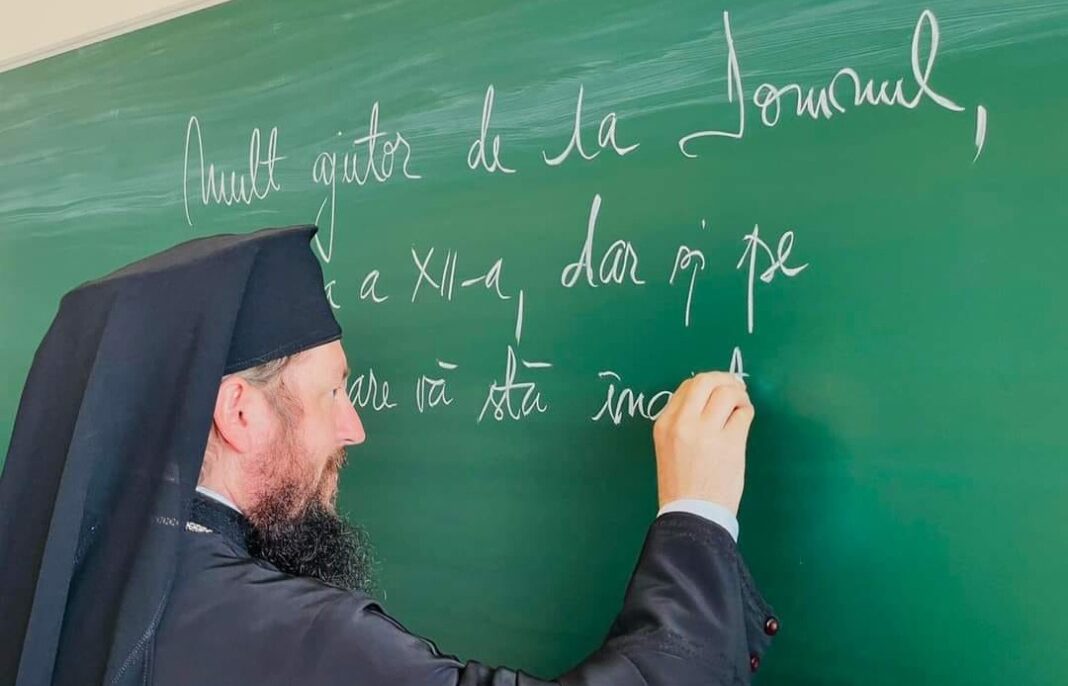 Mult ajutor de la Domnul,
a a XII-a, dar și pe
are vă stă